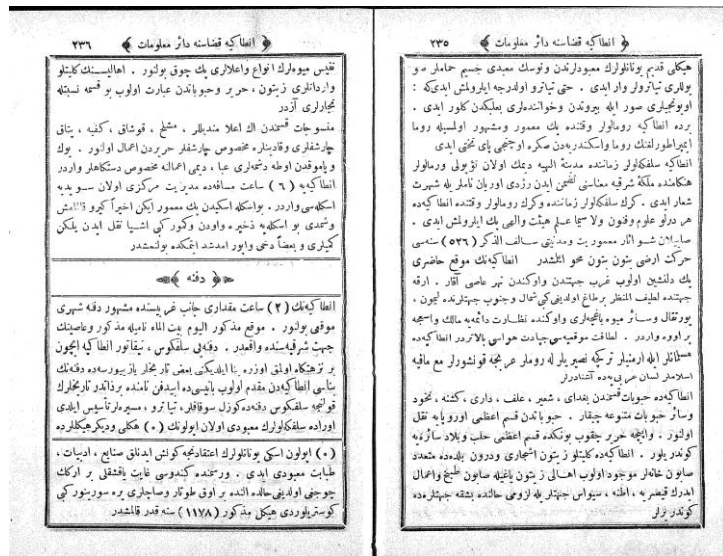 ﴿ انطاكیه قضاسنه دائر معلومات ﴾ ٢٣٥
هیكلی قدیم یونانلولرك معبودلرندن ونوسك معبدی جسیم حماملر صو
یوللری تیاترولر وار ایدی . حتی تیاترو اولدرجه ایلرولمش ایدی كه :
اویونجیلری صور ایله بیروتدن وخواننده‌لری بعلبكدن كلور ایدی .
برده انطاكیه رومالولر وقتنده پك معمور ومشهور اولمسیله روما
ایمپراطورلغنك روما واسكندریه‌دن صكره اوچنجی پای تختی ایدی
انطاكیه سلفكه‌لولر زماننده مدینة الهیه دیمك اولان نؤپولی ورمالولر
هنكامنده ملكهٔ شرقیه معناسنی تضمن ایدن رزدی اوریان ناملر یله شهرت
شعار ایدی . كرك سلفكه‌لولر زماننده وكرك رومالولر وقتنده انطاكیه‌ده
هر درلو علوم وفنون ولا سیما علم هیئت والهی پك ایلرولمش ایدی .
صاییلان شو اثار معموریت ومدنیتی سالف الذكر (٥٢٦) سنه‌سی
حركت ارضی بتون بتون محو ائلشدر انطاكیه‌نك موقع حاضری
پك دلنشین اولوب غرب جهتندن واوكندن نهر عاصی آقار . ارقه
جهتنده لطیف المنظر برطاغ اولدیغی كی شمال وجنوب جهتلرنده لیمون ،
پورتقال وسائر میوه باغچه‌لری واوكنده نظارت دائمه‌یه مالك واسعجه
بر اووه واردر . لطافت موقعیه‌سی جیادت هواسی بالاتردر انطاكیه‌ده
مسلمانلر ایله ارمنیلر تركیه نصیریلر له روملر عربجه قونشورلر مع مافیه
اسلاملر لسان عربی یه‌ده آشنادرلر
انطاكیه‌ده حبوبات قسمندن بغدای ، شعیر ، علف ، داری ، كشنه ، نخود
وسائر حبوبات متنوعه چیقار . حبوباتدن قسم اعظمی اوروپایه نقل
اولنور . وایچه حریر چقوب بونكده قسم اعظمی حلب وبلاد سائره‌یه
كوندریلور . انطاكیه‌ده كلیتلو زیتون اشجاری ودرون بلده‌ده متعدد
صابون خانه‌لر موجود اولوب اهالی زیتون یاغیله صابون طبخ واعمال
ایدرك قیصریه ، اطنه ، سیواس جهتلر یله لزومی حالنده بشقه جهتلره‌ده
كوندررلر
﴿ انطاكیه قضاسنه دائر معلومات ﴾ ٢٣٦
نفیس میوه‌لرك انواع واعلالری پك چوق بولنور . اهالیسنك كلیتلو
وارداتلری زیتون ، حریر وحبوباتدن عبارت اولوب بو قسمه نسبتله
تجارلری آزدر
منسوجات قسمندن اك اعلا مندیللر ، مشلح ، قوشاق ، كفیه ، یتاق
چارشفلری وقادینلره مخصوص چارشفلر حریردن اعمال اولنور . یوك
وپاموقدن اوطه دشمه‌لری عبا ، دیمی اعمالنه مخصوص دستكاهلر واردر
انطاكیه‌یه (٦) ساعت مسافه‌ده مدیریت مركزی اولان سویدیه
اسكله‌سی واردر . بو اسكله اسكیدن پك معمور ایكن اخیراً كیرو قالمش
وشمدی بو اسكله‌یه ذخیره واودن وكمور كی اشیا نقل ایدن یلكن
كمیلری و بعضاً دخی واپور امدشد ایتمكده بولنمشدر
﴿ دفنه ﴾
انطاكیه‌نك (٢) ساعت مقداری جانب غربیسنده مشهور دفنه شهری
موقعی بولنور . موقع مذكور الیوم بیت الماء نامیله مذكور وعاصینك
جهت شرقیه‌سنده واقعدر . دفنه‌یی سلفكوس ، نیقاتور انطاكیه ایچون
بر نزهتكاه اولمق اوزره بنا ایلدیكنی بعض تاریخلر یازییورسه‌ده دفنه‌نك
بناسی انطاكیه‌دن مقدم اولوب بانیسی‌ده ابیدفن نامنده برذاتدر تاریخلرك
قولنجه سلفكوس دفنه‌ده كوزل سوقاقلر ، تیاترو ، مسیره‌لر تأسیس ایلدی
اوراده سلفكه‌لولرك معبودی اولان اپولونك (٥) هكلی ودیكر هیكللرده
(٥) اپولون اسكی یونانلولرك اعتقادنجه كونش ایدنلق صنایع ، ادبیات ،
طبابت معبودی ایدی . ورسمنده كندوسی غایت یاقشقلی بر اركك
چوجغی اولدیغی حالده النده بر اوق طوتار وصاچلری بره سورینور كی
كوستریلوردی هیكل مذكور (١١٧٨) سنه قدر قالمشدر